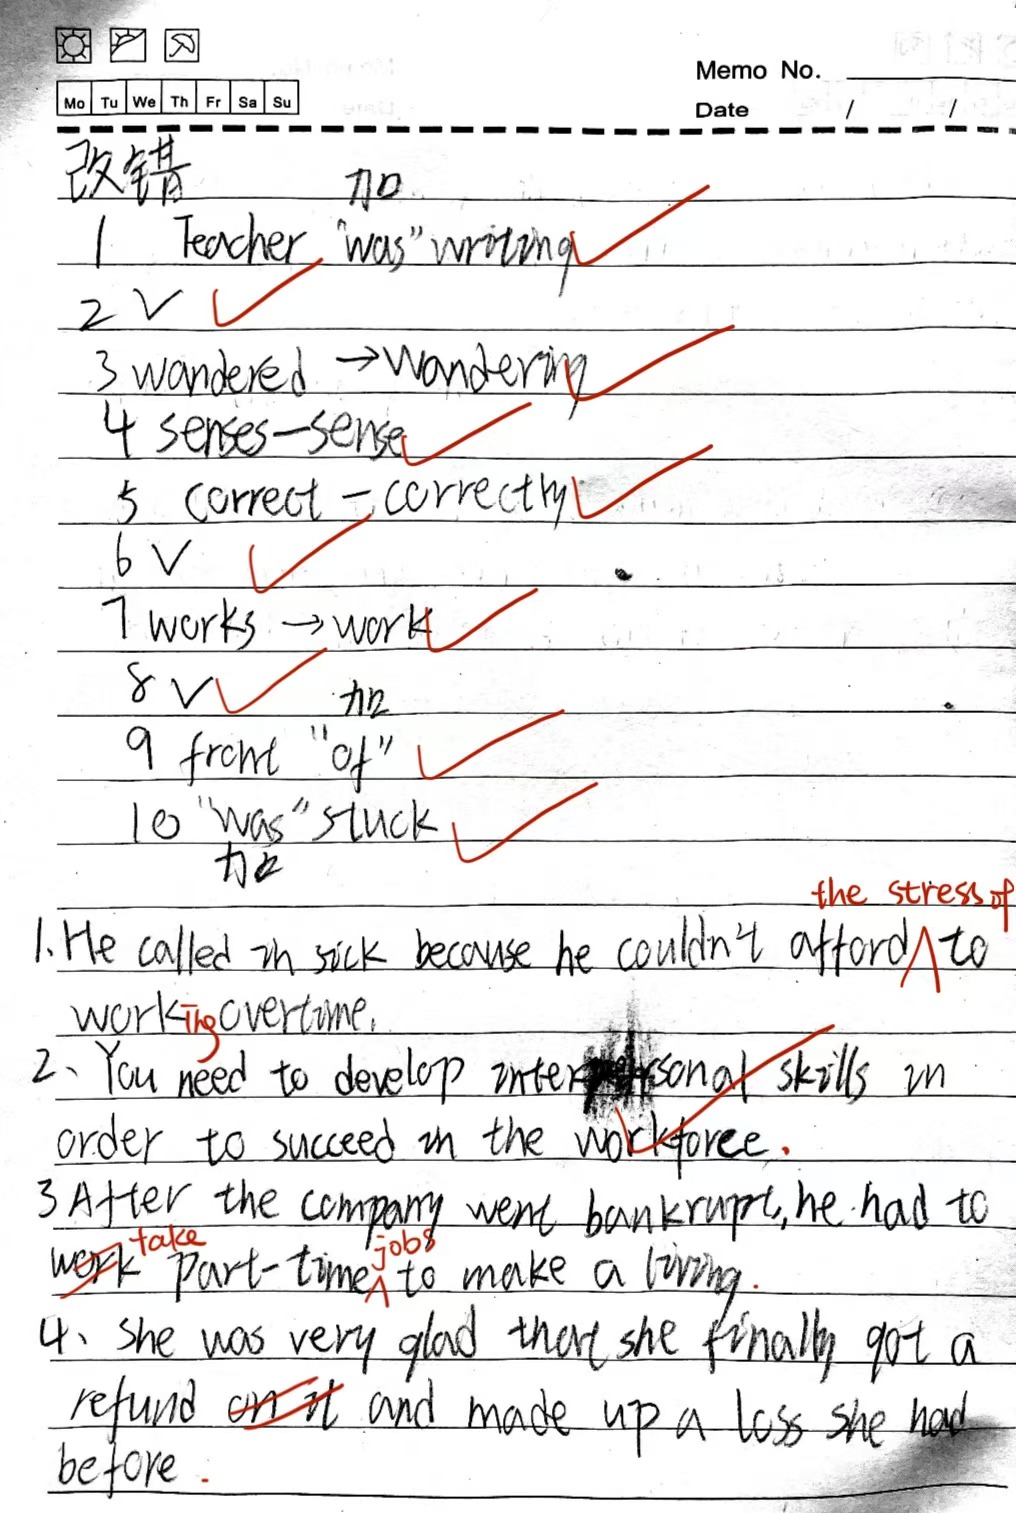 Mo Tu We Th Fr Sa Su
Memo No.
Date / /
改错
加
1 Teacher "was" writing
2 √
3 wandered → wandering
4 senses - sense
5 correct - correctly
6 √
7 works → work
8 √
加
9 front "of"
10 "was" stuck
加
the stress of
1. He called in sick because he couldn't afford to
working overtime.
2、You need to develop interpersonal skills in
order to succeed in the workforce.
3 After the company went bankrupt, he had to
take jobs
work part-time to make a living.
4、She was very glad that she finally got a
refund on it and made up a loss she had
before.